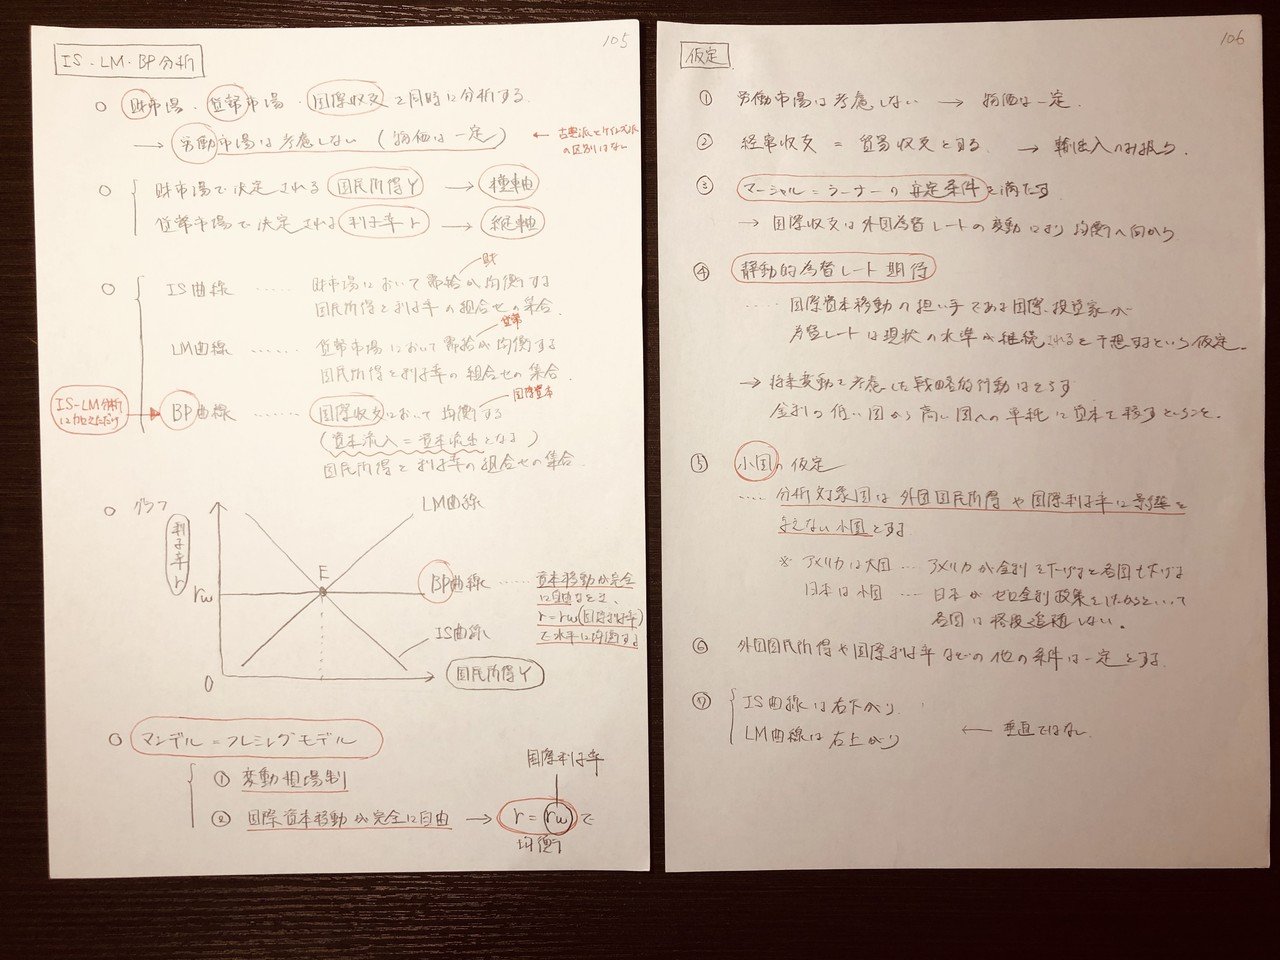 105
IS・LM・BP分析
○ 財市場・貨幣市場・国際収支を同時に分析する。
→ 労働市場は考慮しない (物価は一定) ← 古典派とケインズ派
の区別はない
○ 財市場で決定される 国民所得Y → 横軸
貨幣市場で決定される 利子率r → 縦軸
財
○ IS曲線 …… 財市場において需給が均衡する
国民所得と利子率の組合せの集合.
貨幣
LM曲線 …… 貨幣市場において需給が均衡する
国民所得と利子率の組合せの集合.
国際資本
IS-LM分析
に加えただけ
BP曲線 …… 国際収支において均衡する
(資本流入=資本流出となる)
国民所得と利子率の組合せの集合.
○ グラフ
利子率r
LM曲線
E
rw
BP曲線 …… 資本移動が完全
に自由なとき、
r=rw(国際利子率)
で水平に均衡する
IS曲線
0
国民所得Y
○ マンデル=フレミングモデル
① 変動相場制
国際利子率
② 国際資本移動が完全に自由 → r=rw で
均衡
106
仮定
① 労働市場は考慮しない → 物価は一定.
② 経常収支 = 貿易収支とする → 輸出入のみ扱う.
③ マーシャル=ラーナーの安定条件を満たす
→ 国際収支は外国為替レートの変動により均衡へ向かう.
④ 静動的為替レート期待
…… 国際資本移動の担い手である国際投資家が
為替レートは現状の水準が継続されると予想するという仮定.
→ 将来変動を考慮した戦略的行動はとらず
金利の低い国から高い国への単純に資本を移すということ.
⑤ 小国の仮定
…… 分析対象国は外国国民所得や国際利子率に影響を
与えない小国とする.
※ アメリカは大国 … アメリカが金利を下げると各国も下げる
日本は小国 … 日本がゼロ金利政策をしたからといって
各国は追随しない。
⑥ 外国国民所得や国際利子率などの他の条件は一定とする.
⑦ IS曲線は右下がり.
LM曲線は右上がり ← 垂直ではない